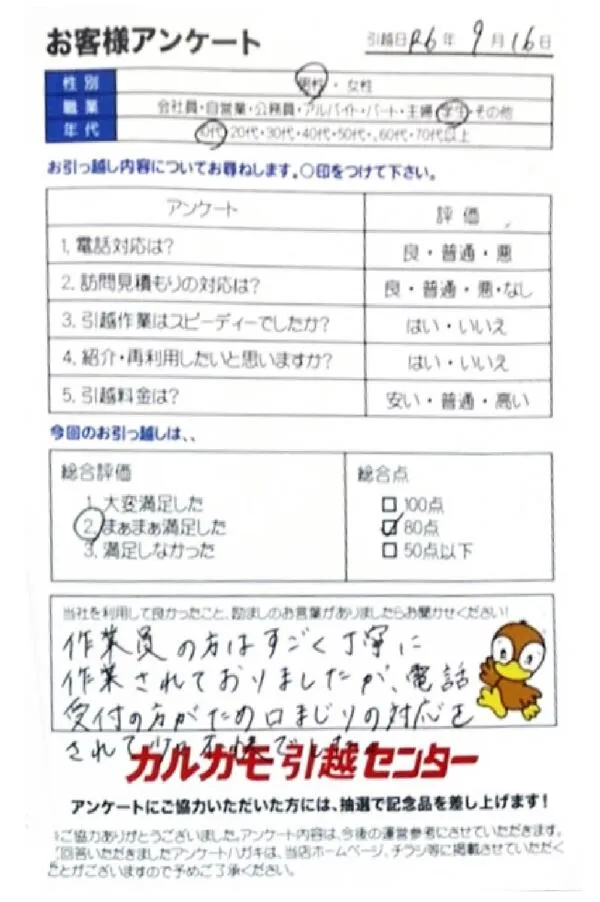 お客様アンケート
引越日 R6年 9月16日
性別 男性・女性
職業 会社員・自営業・公務員・アルバイト・パート・主婦・学生・その他
年代 10代・20代・30代・40代・50代・、60代・70代以上
お引っ越し内容についてお尋ねします。○印をつけて下さい。
アンケート 評価
1. 電話対応は? 良・普通・悪
2. 訪問見積もりの対応は? 良・普通・悪・なし
3. 引越作業はスピーディーでしたか? はい・いいえ
4. 紹介・再利用したいと思いますか? はい・いいえ
5. 引越料金は? 安い・普通・高い
今回のお引っ越しは、、
総合評価
1. 大変満足した
2. まぁまぁ満足した
3. 満足しなかった
総合点
100点
80点
50点以下
当社を利用して良かったこと、励ましのお言葉がありましたらお聞かせください!
作業員の方はすごく丁寧に
作業されておりましたが、電話
受付の方がため口まじりの対応を
されて少々不快でした。
カルガモ引越センター
アンケートにご協力いただいた方には、抽選で記念品を差し上げます!
ご協力ありがとうございました。アンケート内容は、今後の運営参考にさせていただきます。
ご回答いただきましたアンケートハガキは、当店ホームページ、チラシ等に掲載させていただく
ことがございますので予めご了承ください。